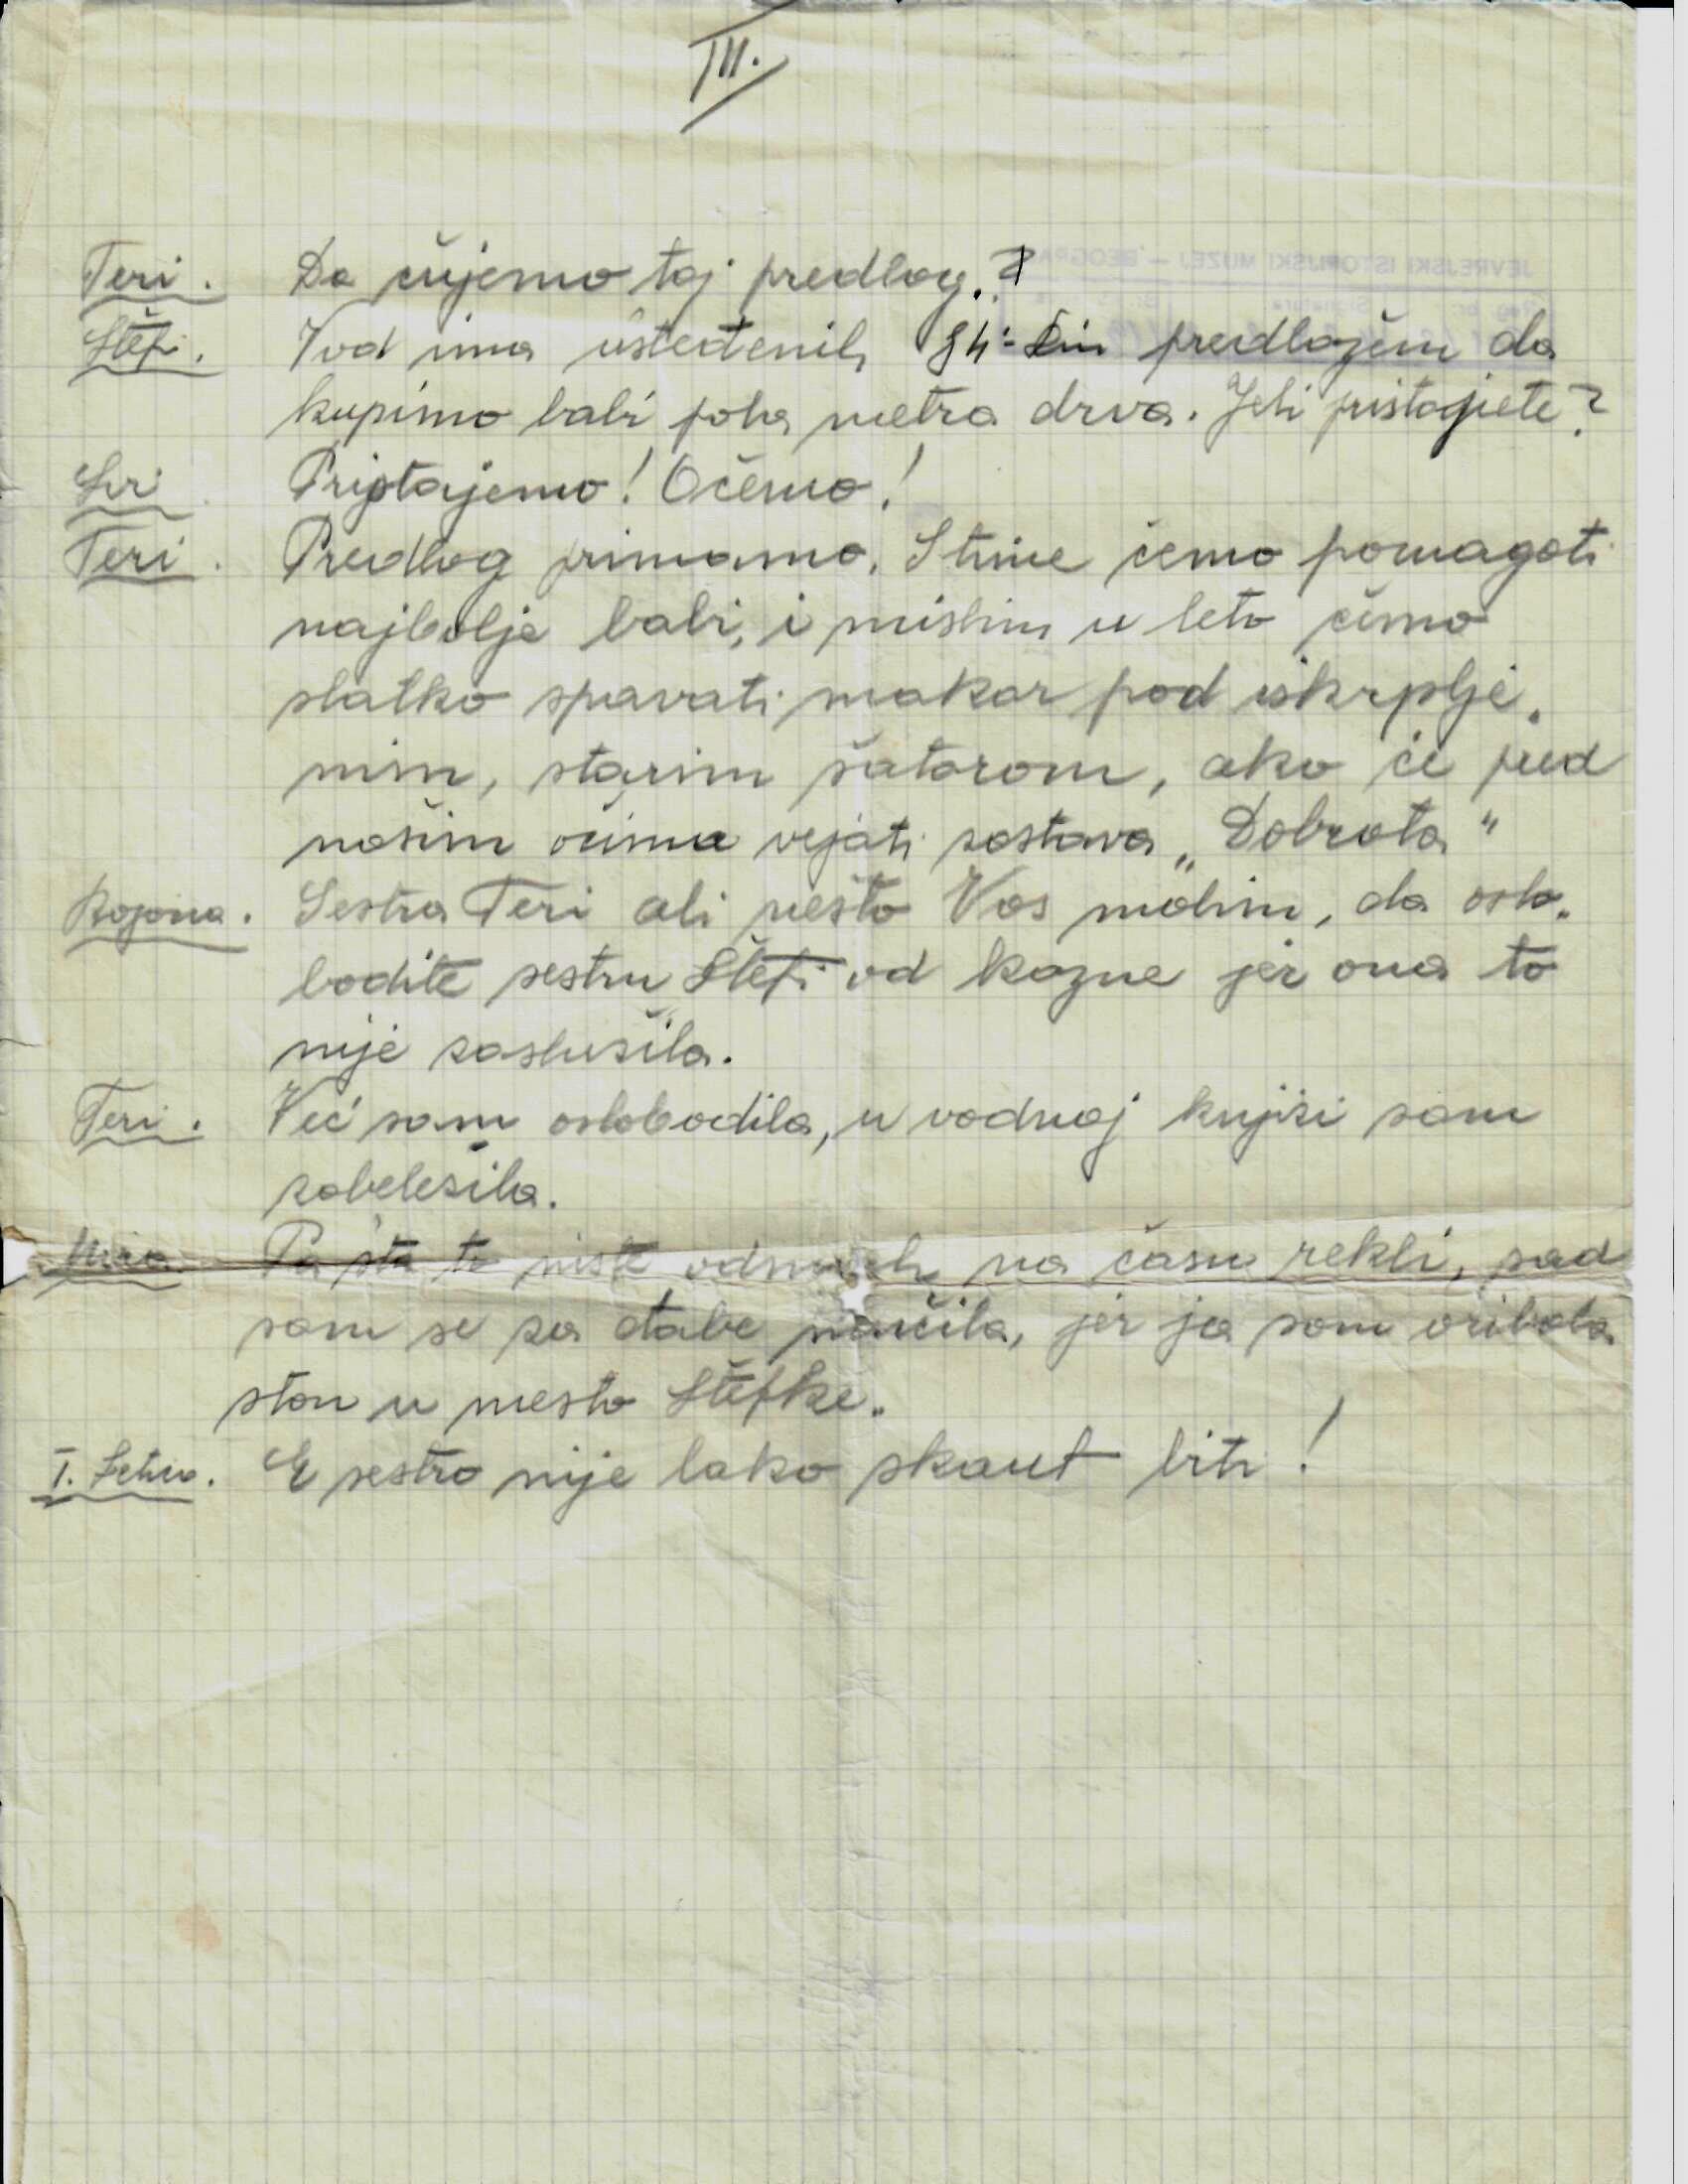 III.
Teri. Da čujemo taj predlog.?
Štefi. Vod ima ušteđenih 84·- Din predlažem da
kupimo babi pola metra drva. Jeli pristajete?
Svi Pristajemo! Oćemo!
Teri. Predlog primamo. S time ćemo pomagati
najbolje babi, i mislim u leto ćemo
slatko spavati makar pod iskrplje„
nim, starim šatorom, ako će pred
našim očima vejati zastava „Dobrota"
Bojana. Sestra Teri ali nešto Vas molim, da oslo„
bodite sestru Štefi od kazne jer ona to
nije zaslužila.
Teri. Već sam oslobodila, u vodnoj knjizi sam
zabeležila.
Mira Pa šta to niste odmah na času rekli, sad
sam se za džabe mučila, jer ja sam oribala
stan u mesto Štefke.
I. Četa. E sestro nije lako skaut biti!
JEVREJSKI ISTORIJSKI MUZEJ — BEOGRAD